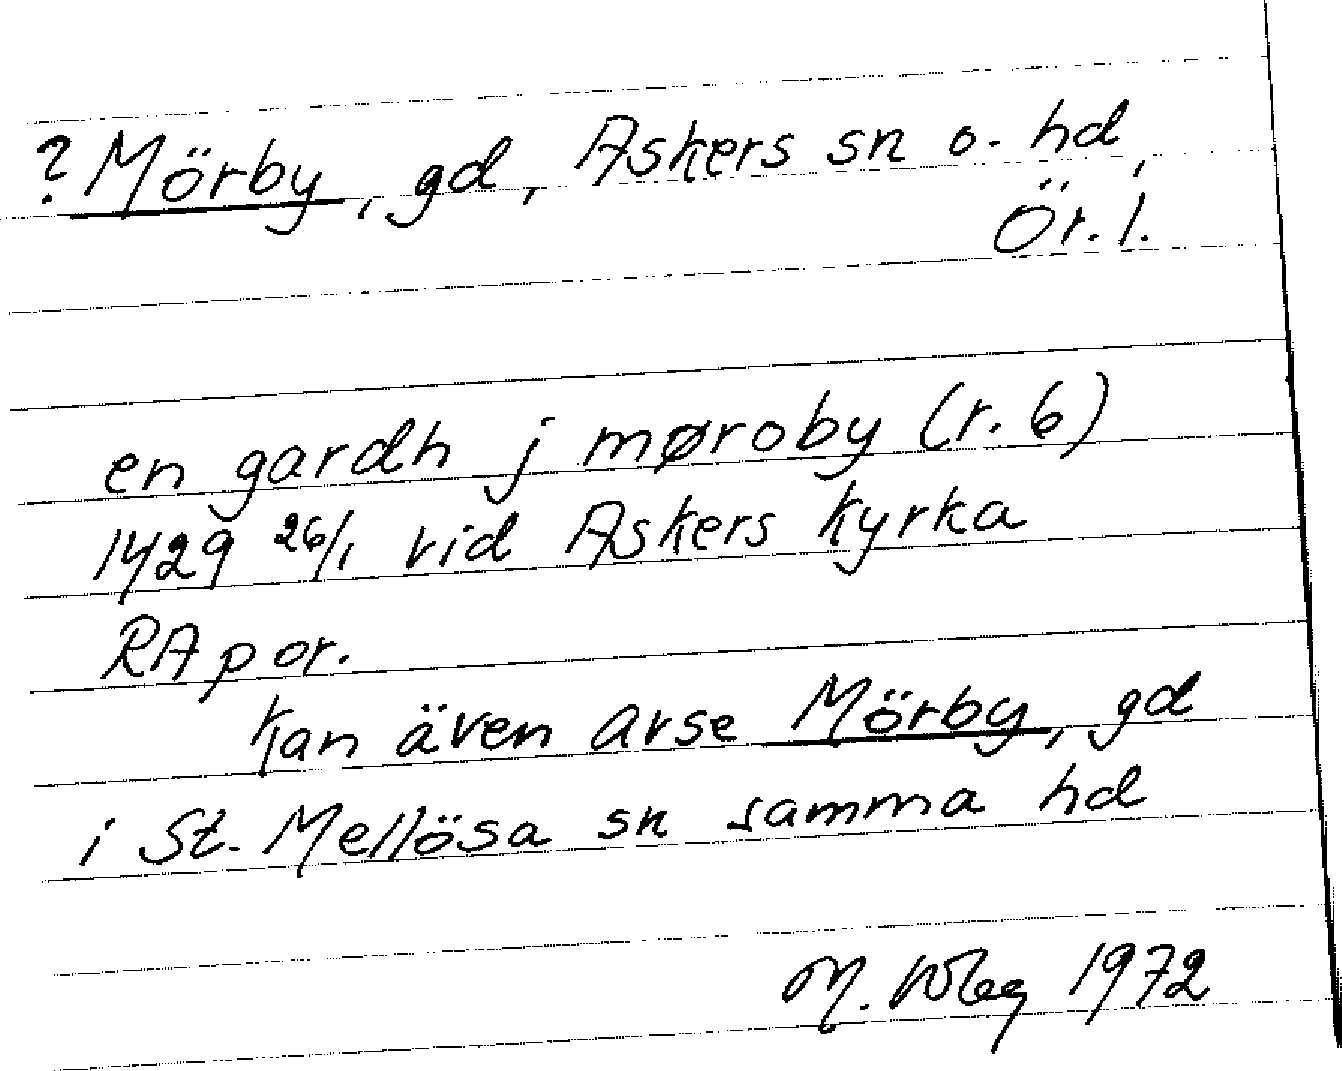 ? Mörby, gd, Askers sn o. hd,
Ör. l.
en gardh j møroby (r. 6)
1429 26/1 vid Askers kyrka
RAp or.
Kan även avse Mörby, gd
i St. Mellösa sn samma hd
M. 1972